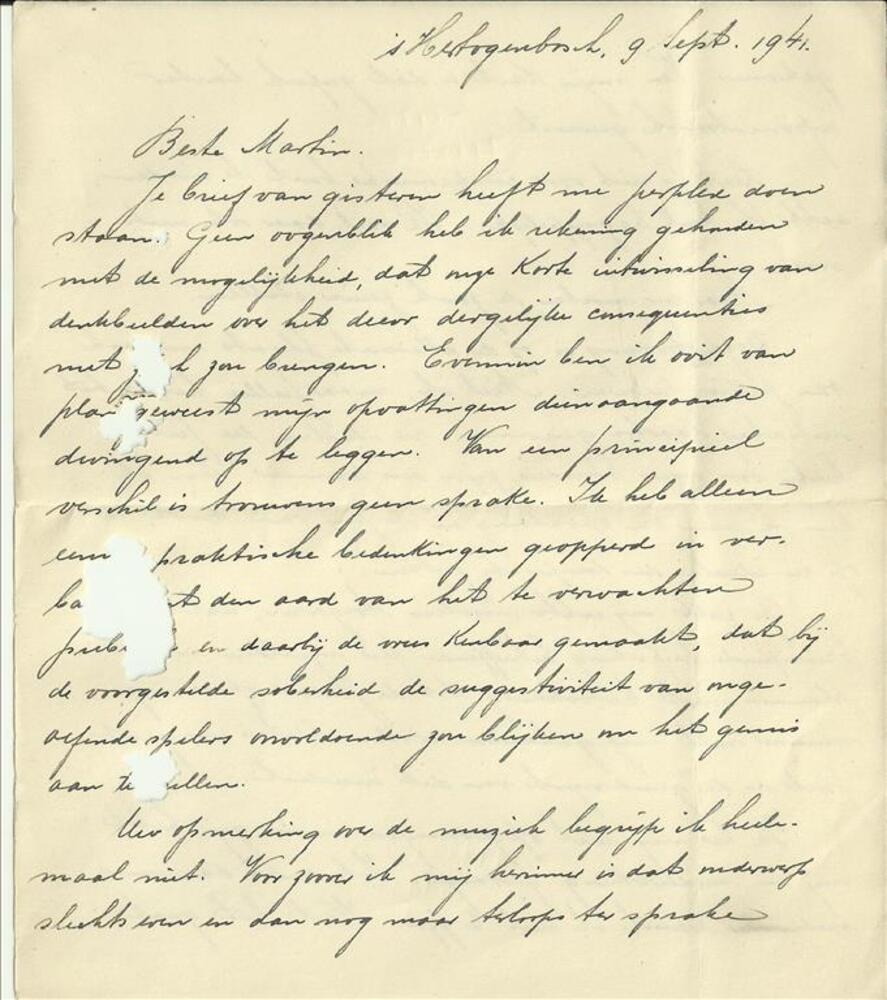 's Hertogenbosch, 9 Sept. 1941.
Beste Martin.
Je brief van gisteren heeft me perplex doen
staan. Geen oogenblik heb ik rekening gehouden
met de mogelijkheid, dat onze korte uitwisseling van
denkbeelden over het decor dergelijke consequenties
met z h zou brengen. Evenmin ben ik ooit van
plan geweest mijn opvattingen dienaangaande
dwingend op te leggen. Van een principieel
verschil is trouwens geen sprake. Ik heb alleen
praktische bedenkingen geopperd in ver-
ba t den aard van het te verwachten
publ en daarbij de vrees kenbaar gemaakt, dat bij
de voorgestelde soberheid de suggestiviteit van onge-
oefende spelers onvoldoende zou blijken om het gemis
aan te ullen.
Uw opmerking over de muziek begrijp ik heele-
maal niet. Voor zoover ik mij herinner is dat onderwerp
slechts even en dan nog maar terloops ter sprake